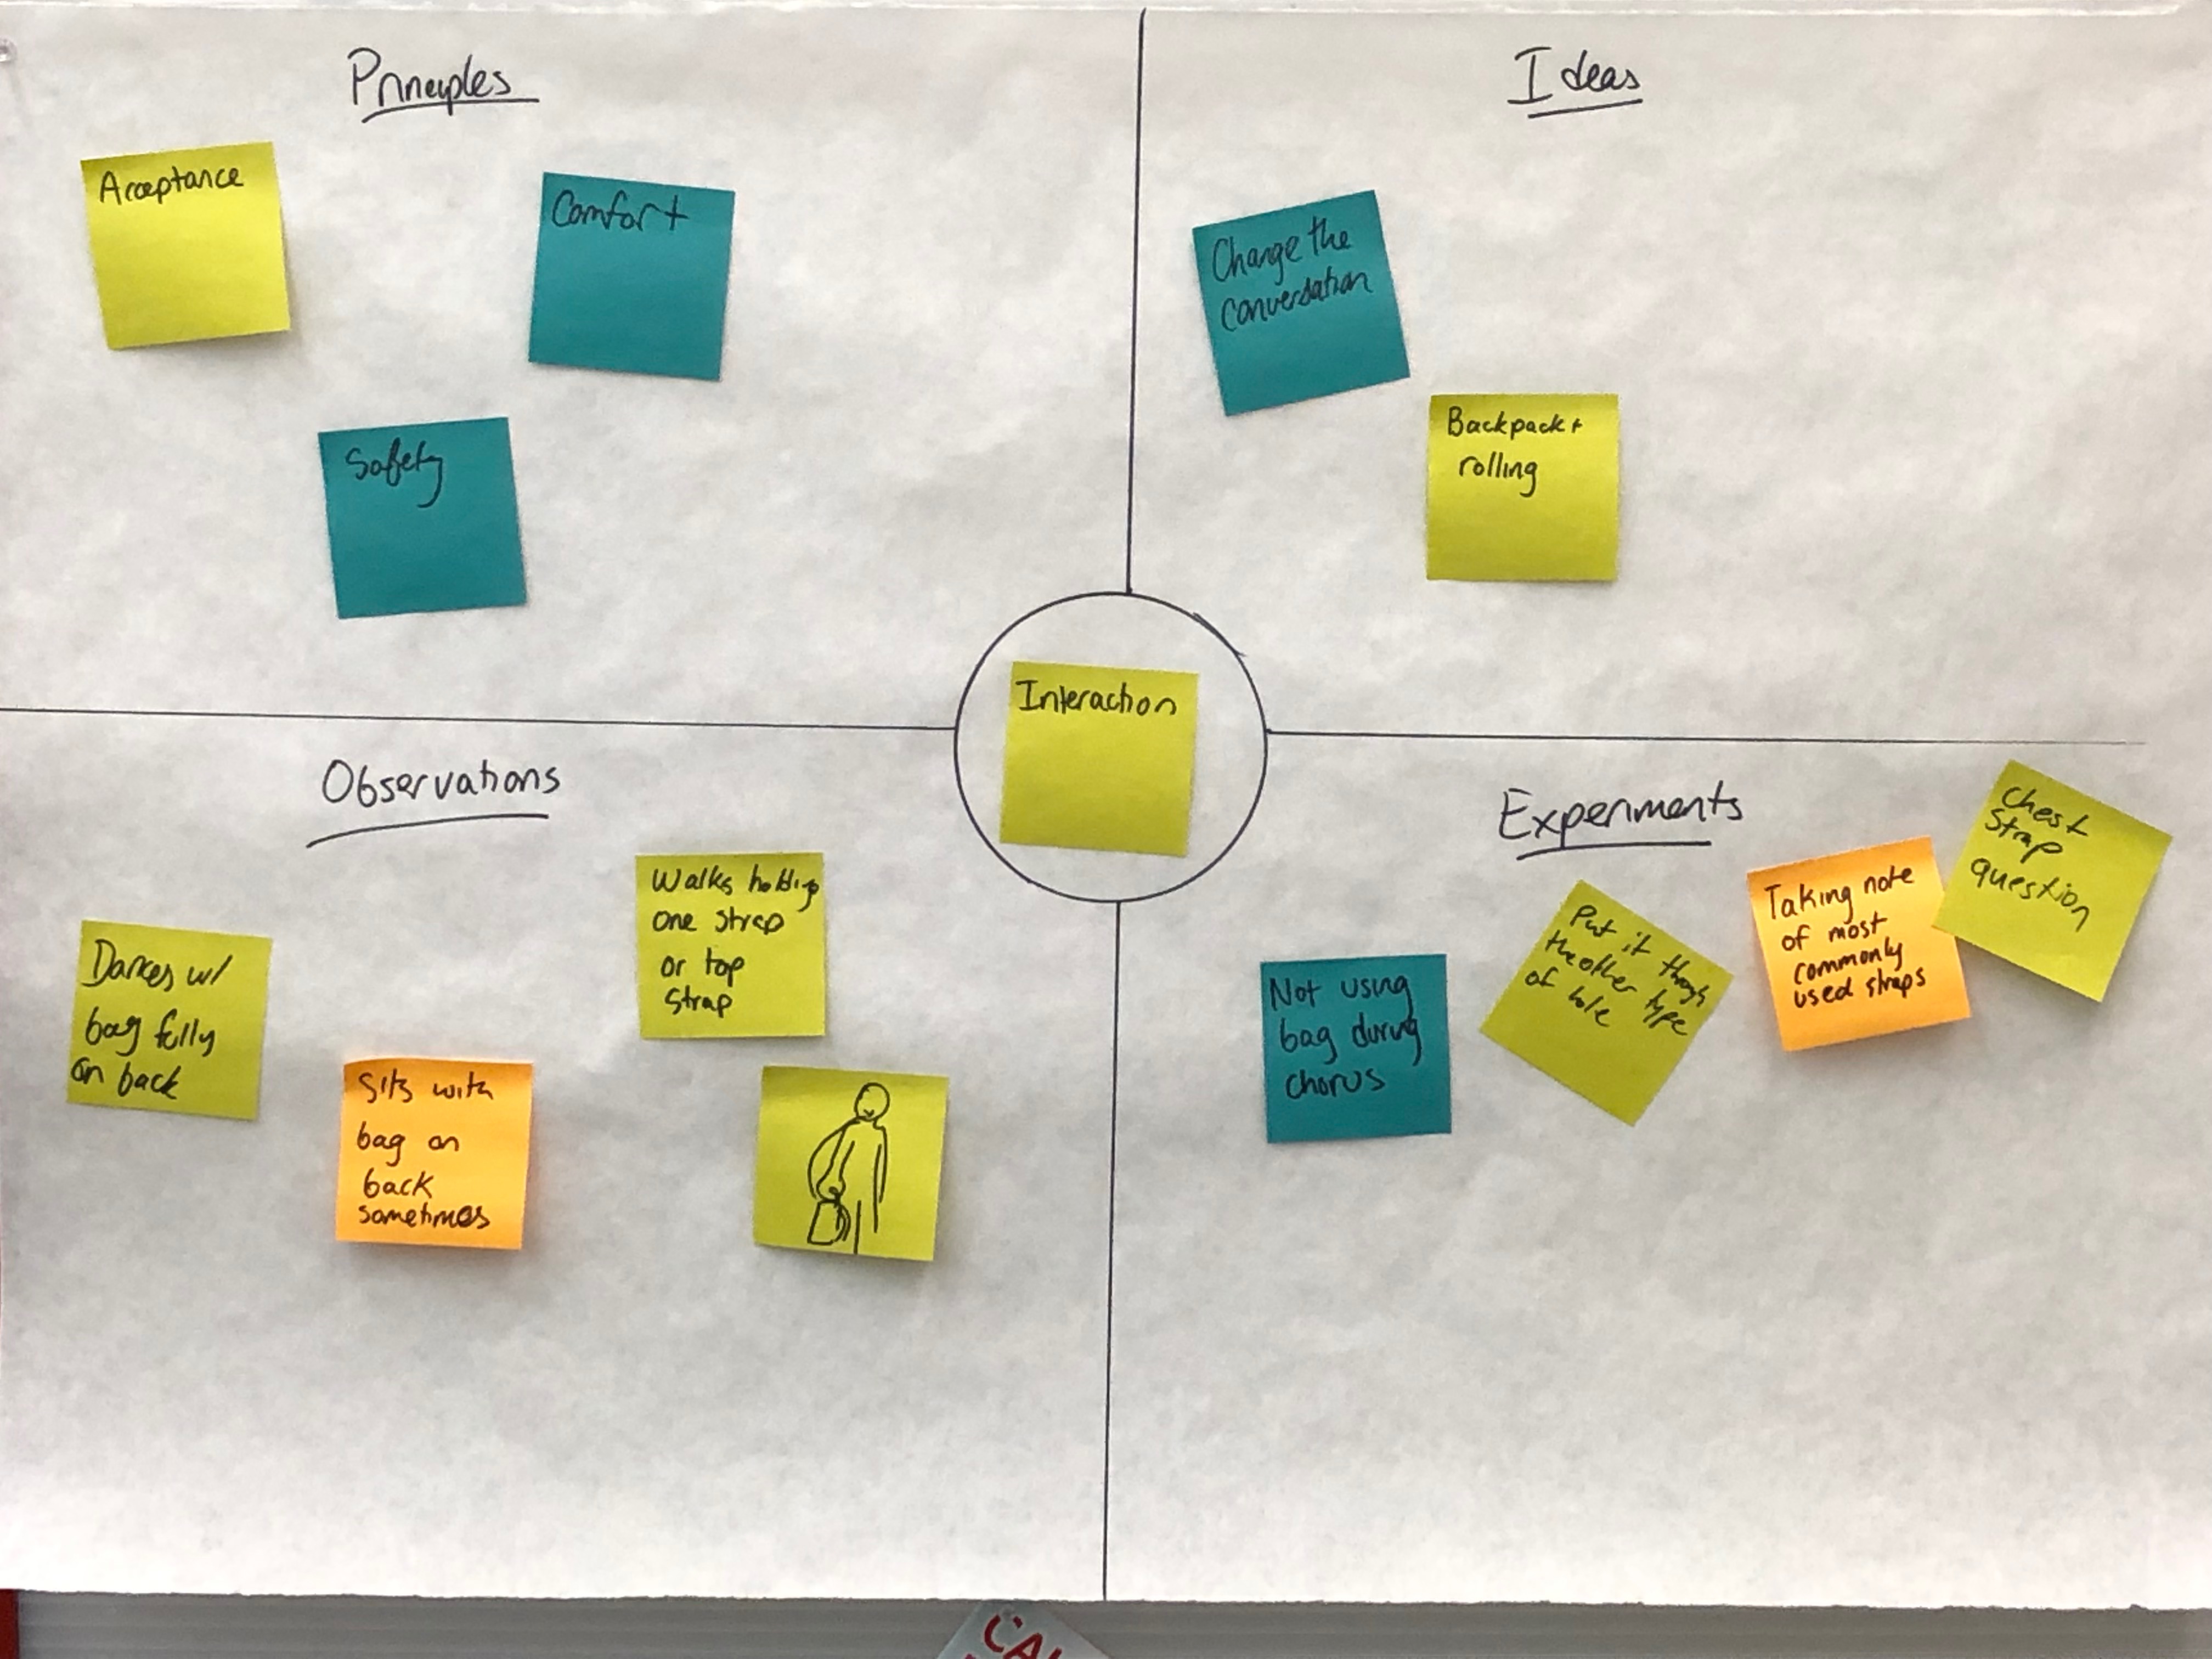 Principles
Acceptance
Comfort
Safety
Ideas
Change the
conversation
Backpack +
rolling
Interaction
Observations
Dances w/
bag fully
on back
Sits with
bag on
back
sometimes
Walks holding
one strap
or top
strap
Experiments
Not using
bag during
chorus
Put it though
the other type
of hole
Taking note
of most
commonly
used straps
Chest
Strap
question